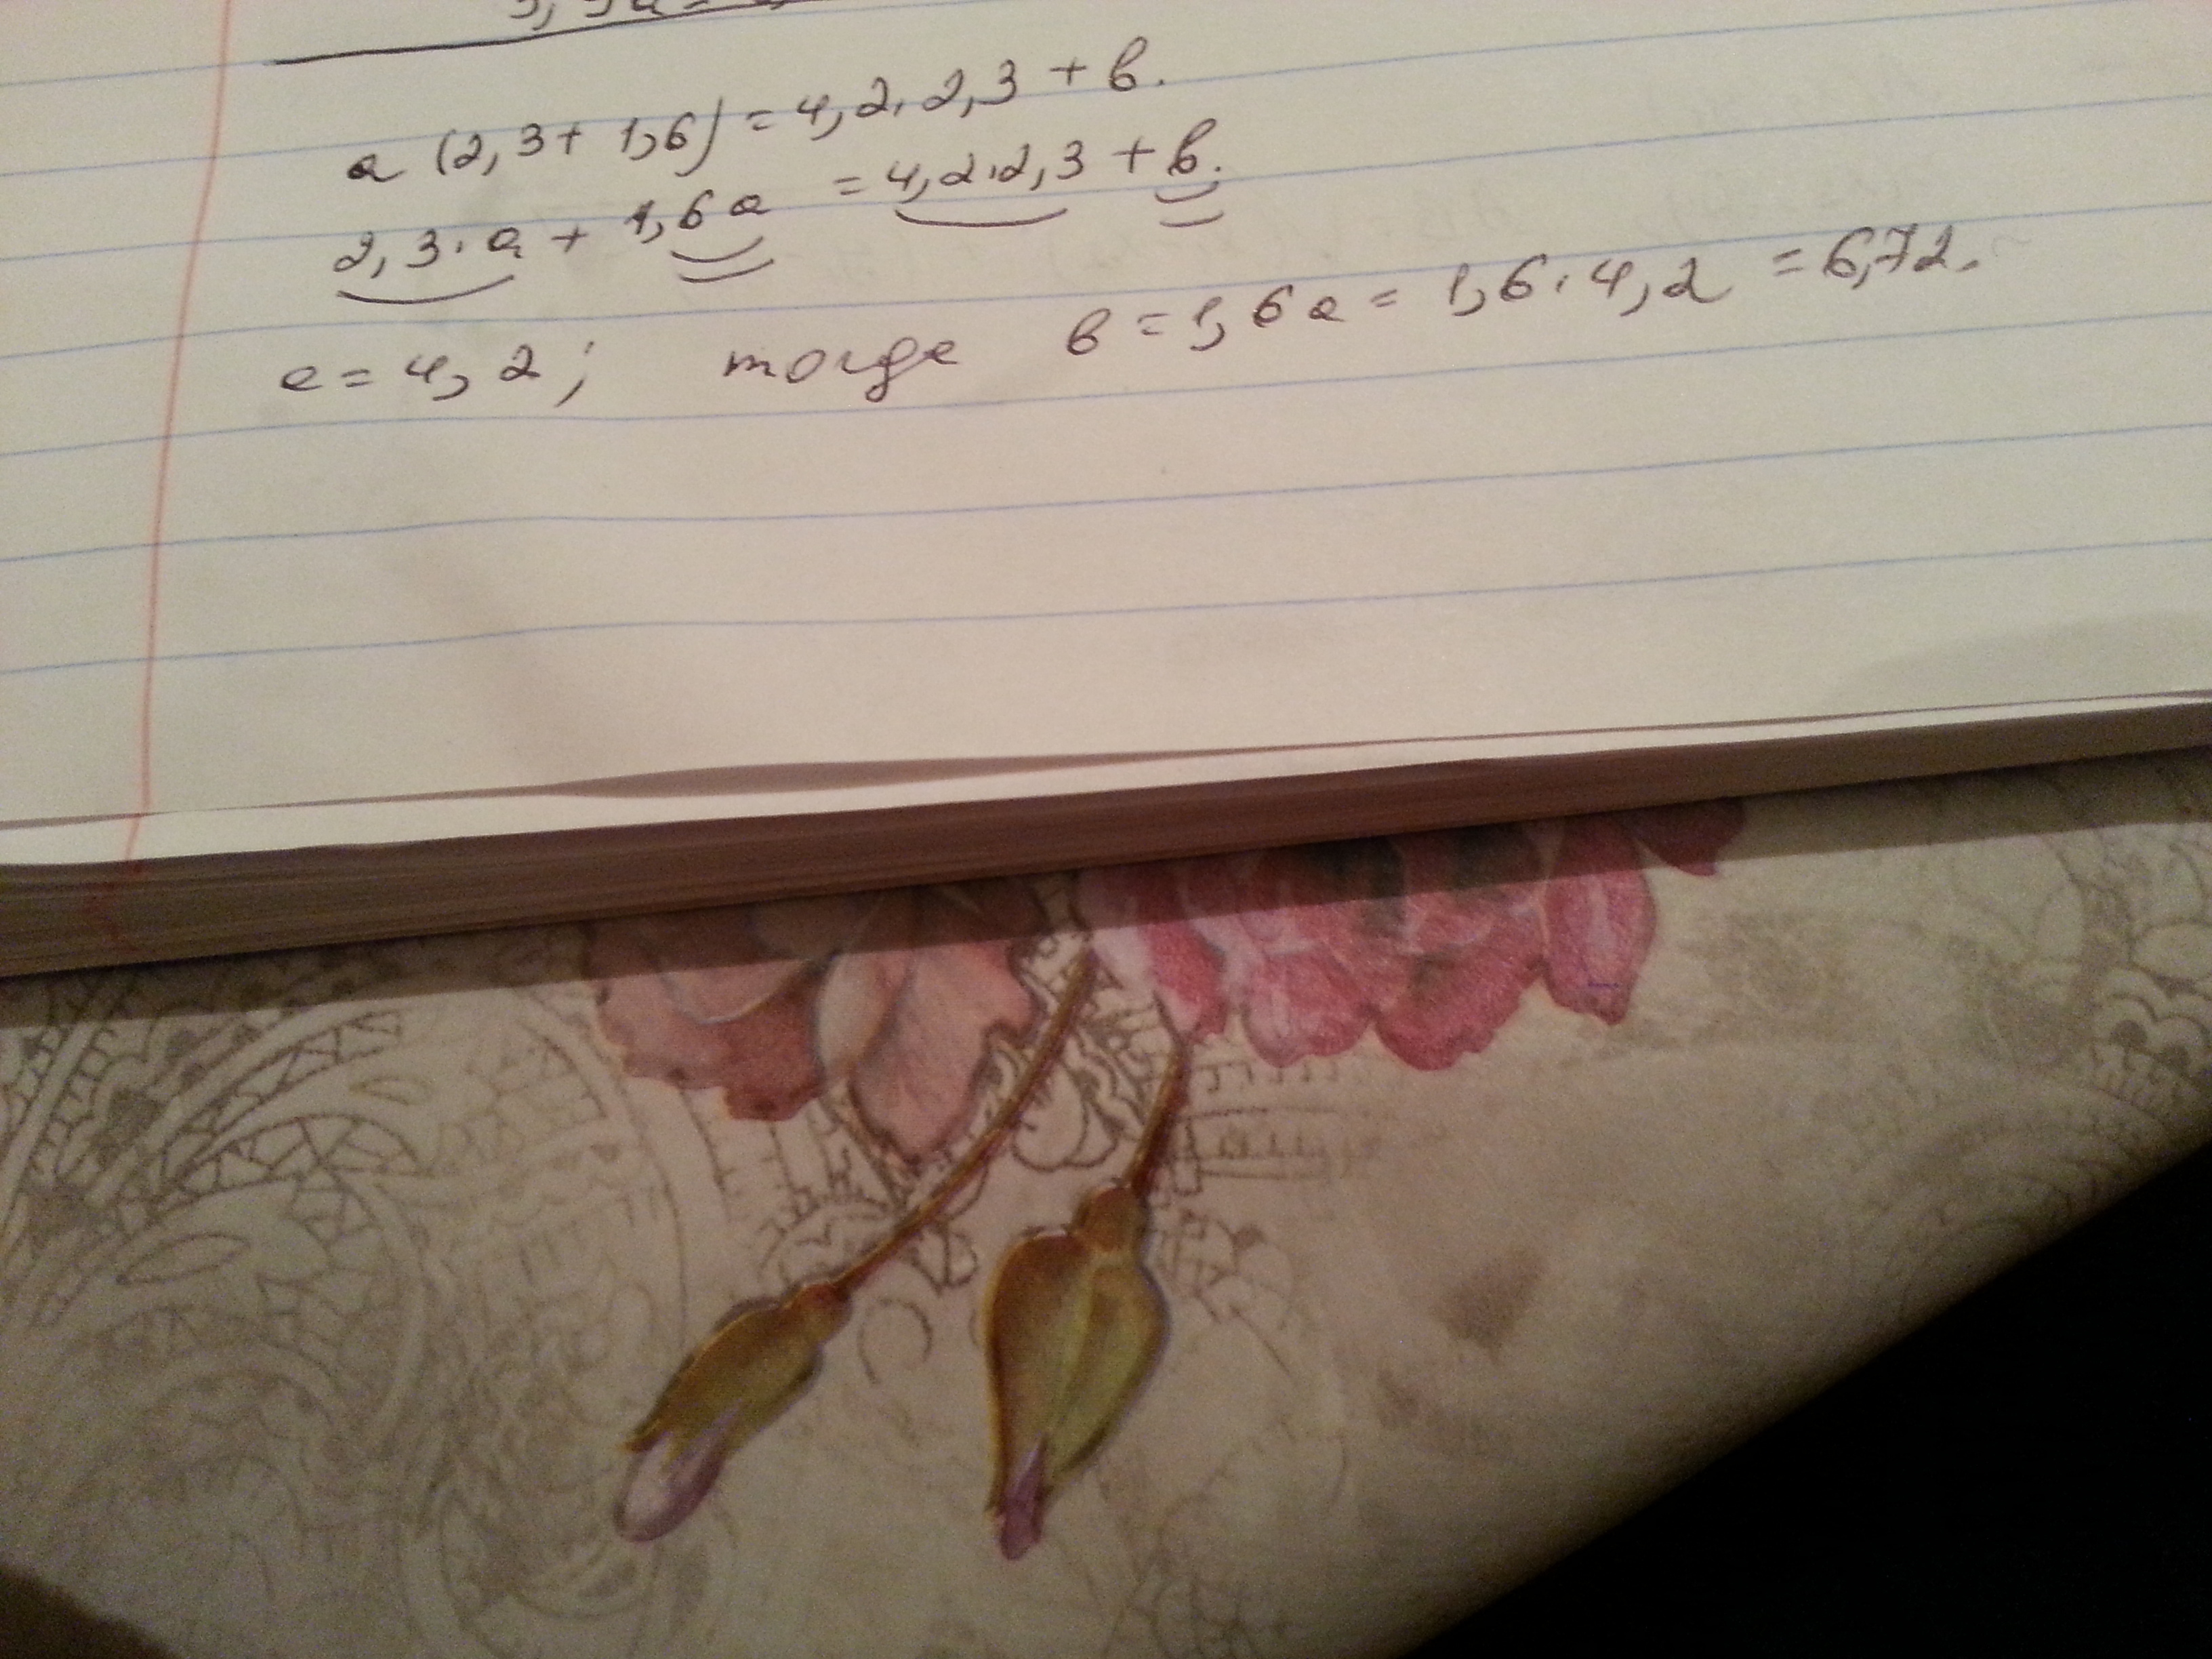 a (2,3 + 1,6) = 4,2 · 2,3 + в.
2,3 · a + 1,6 a = 4,2 · 2,3 + в.
a = 4,2; тогда в = 1,6 a = 1,6 · 4,2 = 6,72.